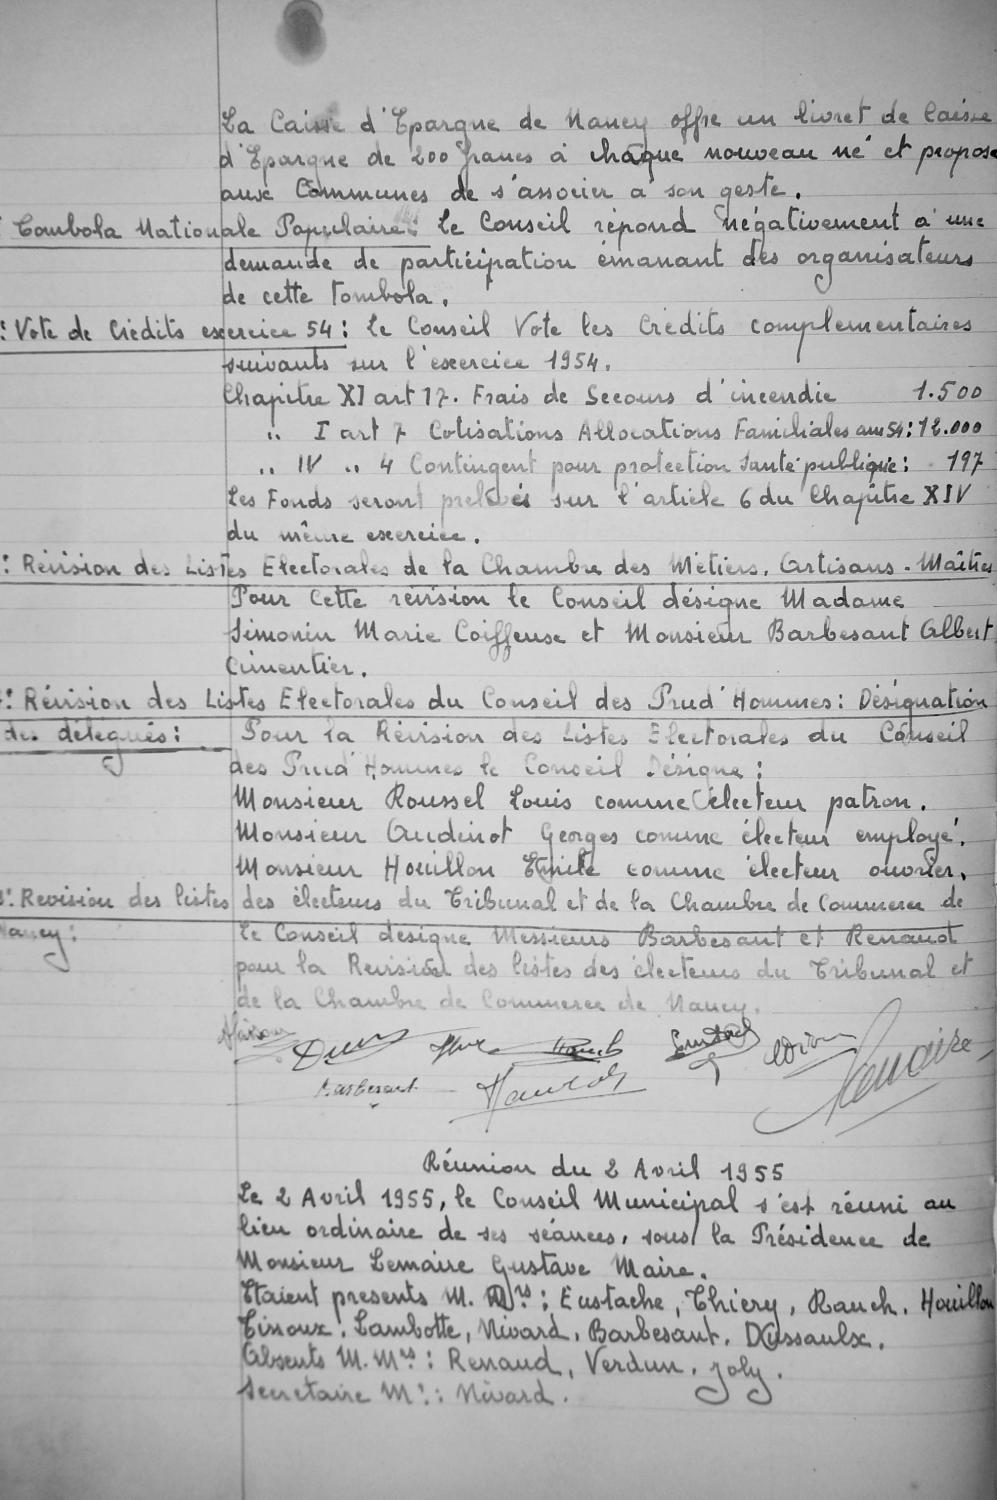 La Caisse d'Epargne de Nancy offre un livret de Caisse
d'Epargne de 200 francs à chaque nouveau né et propose
aux Communes de s'associer à son geste.
Tombola Nationale Populaire: Le Conseil répond négativement à une
demande de participation émanant des organisateurs
de cette Tombola.
: Vote de Crédits exercice 54: Le Conseil Vote les Crédits complementaires
suivants sur l'exercice 1954.
Chapitre XI art 17. Frais de Secours d'incendie 1.500
" I art 7 Cotisations Allocations Familiales ann 54: 12.000
" IV " 4 Contingent pour protection Santé publique: 197
Les Fonds seront prelevés sur l'article 6 du Chapitre XIV
du même exercice.
: Révision des Listes Electorales de la Chambre des Métiers. Artisans - Maîtres
Pour Cette révision le Conseil désigne Madame
Simonin Marie Coiffeuse et Monsieur Barbesant Albert
Cimentier.
: Révision des Listes Electorales du Conseil des Prud'Hommes: Désignation
des délegués: Pour la Révision des Listes Electorales du Conseil
des Prud'Hommes le Conseil Désigne:
Monsieur Roussel Louis comme électeur patron.
Monsieur Audinot Georges comme électeur employé.
Monsieur Houillon Emile comme électeur ouvrier.
: Revision des listes des électeurs du Tribunal et de la Chambre de Commerce de
Nancy: Le Conseil designe Messieurs Barbesant et Renaud
pour la Revision des listes des électeurs du Tribunal et
de la Chambre de Commerce de Nancy.
Rauch Lemaire
Barbesant
Réunion du 2 Avril 1955
Le 2 Avril 1955, le Conseil Municipal s'est réuni au
lieu ordinaire de ses séances, sous la Présidence de
Monsieur Lemaire Gustave Maire.
Etaient presents M. Mrs: Eustache, Thiery, Rauch, Houillon
Tinoux, Lambotte, Nivard, Barbesant, Dussaulx.
Absents M. Mrs: Renaud, Verdun, Joly.
Secretaire Mr: Nivard.